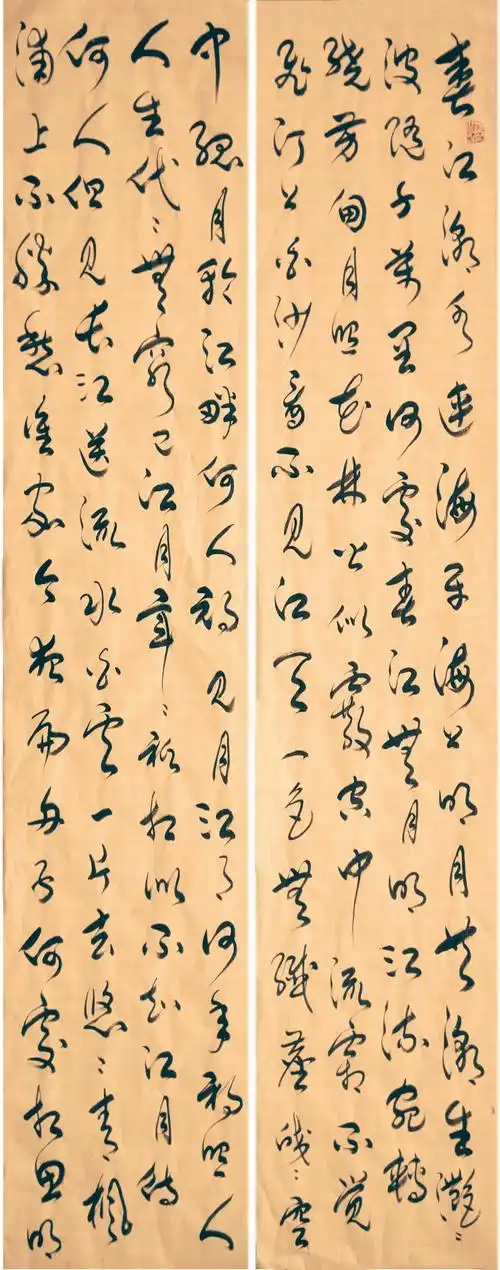 春江潮水連海平海上明月共潮生灩〻
波隨千萬里何處春江無月明江流宛轉
繞芳甸月照花林皆似霰空中流霜不覺
飛汀上白沙看不見江天一色無纖塵皎〻空
中孤月輪江畔何人初見月江月何年初照人
人生代〻無窮已江月年〻祇相似不知江月待
何人但見長江送流水白雲一片去悠〻青楓
浦上不勝愁誰家今夜扁舟子何處相思明